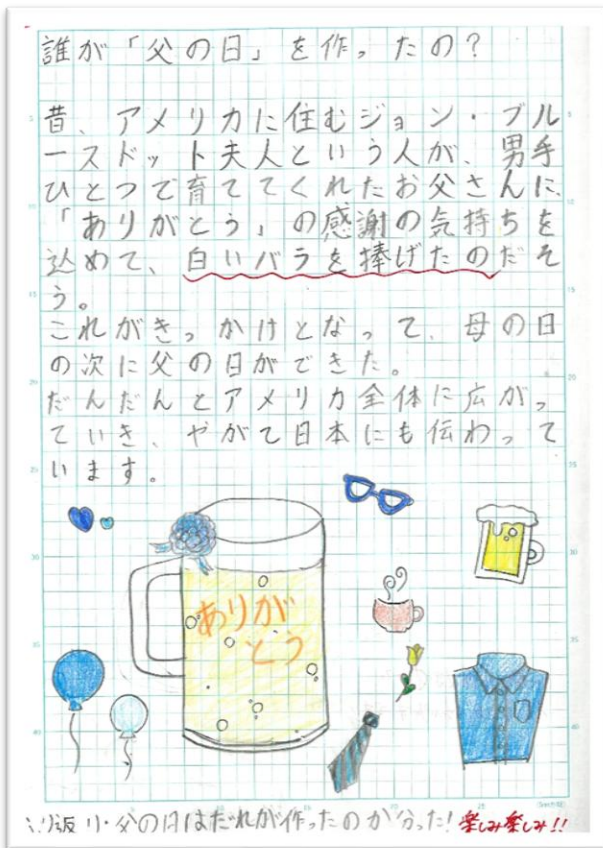 誰が「父の日」を作ったの?
昔、アメリカに住むジョン・ブル
ースドット夫人という人が、男手
ひとつで育ててくれたお父さんに、
「ありがとう」の感謝の気持ちを
込めて、白いバラを捧げたのだそ
う。
これがきっかけとなって、母の日
の次に父の日ができた。
だんだんとアメリカ全体に広がっ
ていき、やがて日本にも伝わって
います。
ありが
とう
り返り・父の日はだれが作ったのか分った!楽しみ楽しみ!!